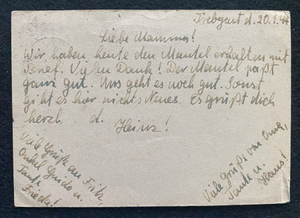 d. 20.1.44
Liebe Mamma!
Wir haben heute den Mantel erhalten mit
Brief. Vielen Dank! Der Mantel paßt
ganz gut. Uns geht es noch gut. Sonst
gibt es hier nichts Neues. Es grüßt dich
herzl. d. Heinz!
Viele Grüße an Fritz,
Onkel Guido u.
Tante
Frieda!
Viele Grüße von Oma,
Tante u.
Hans!